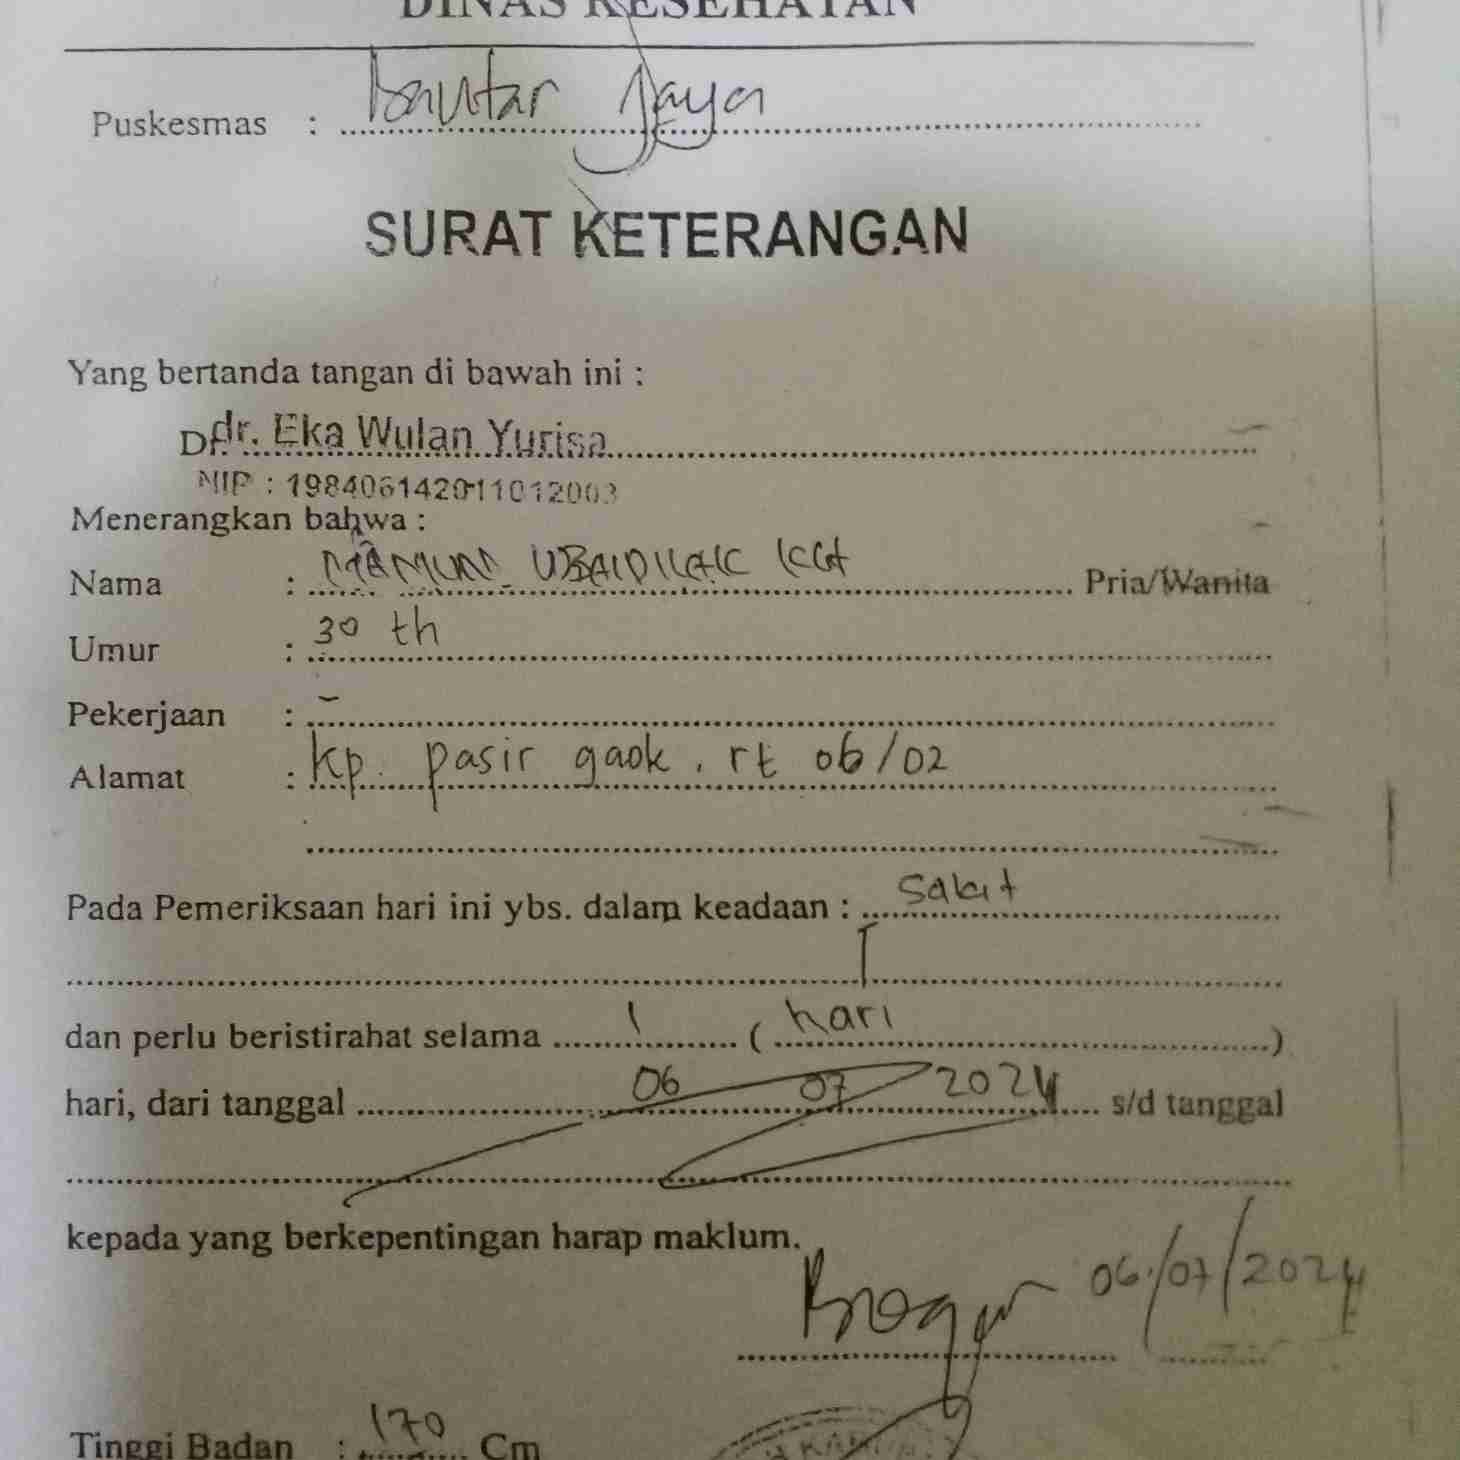 DINAS KESEHATAN
Puskesmas : Bantar Jaya
SURAT KETERANGAN
Yang bertanda tangan di bawah ini :
Dr. dr. Eka Wulan Yurisa
NIP : 198406142011012003
Menerangkan bahwa :
Nama : MAMUN UBAIDILAH Pria/Wanita
Umur : 30 th
Pekerjaan : -
Alamat : kp. pasir gaok. rt 06/02
Pada Pemeriksaan hari ini ybs. dalam keadaan : sakit
dan perlu beristirahat selama 1 ( hari )
hari, dari tanggal 06 07 2024 s/d tanggal
kepada yang berkepentingan harap maklum.
Bogor 06/07/2024
Tinggi Badan : 170 Cm